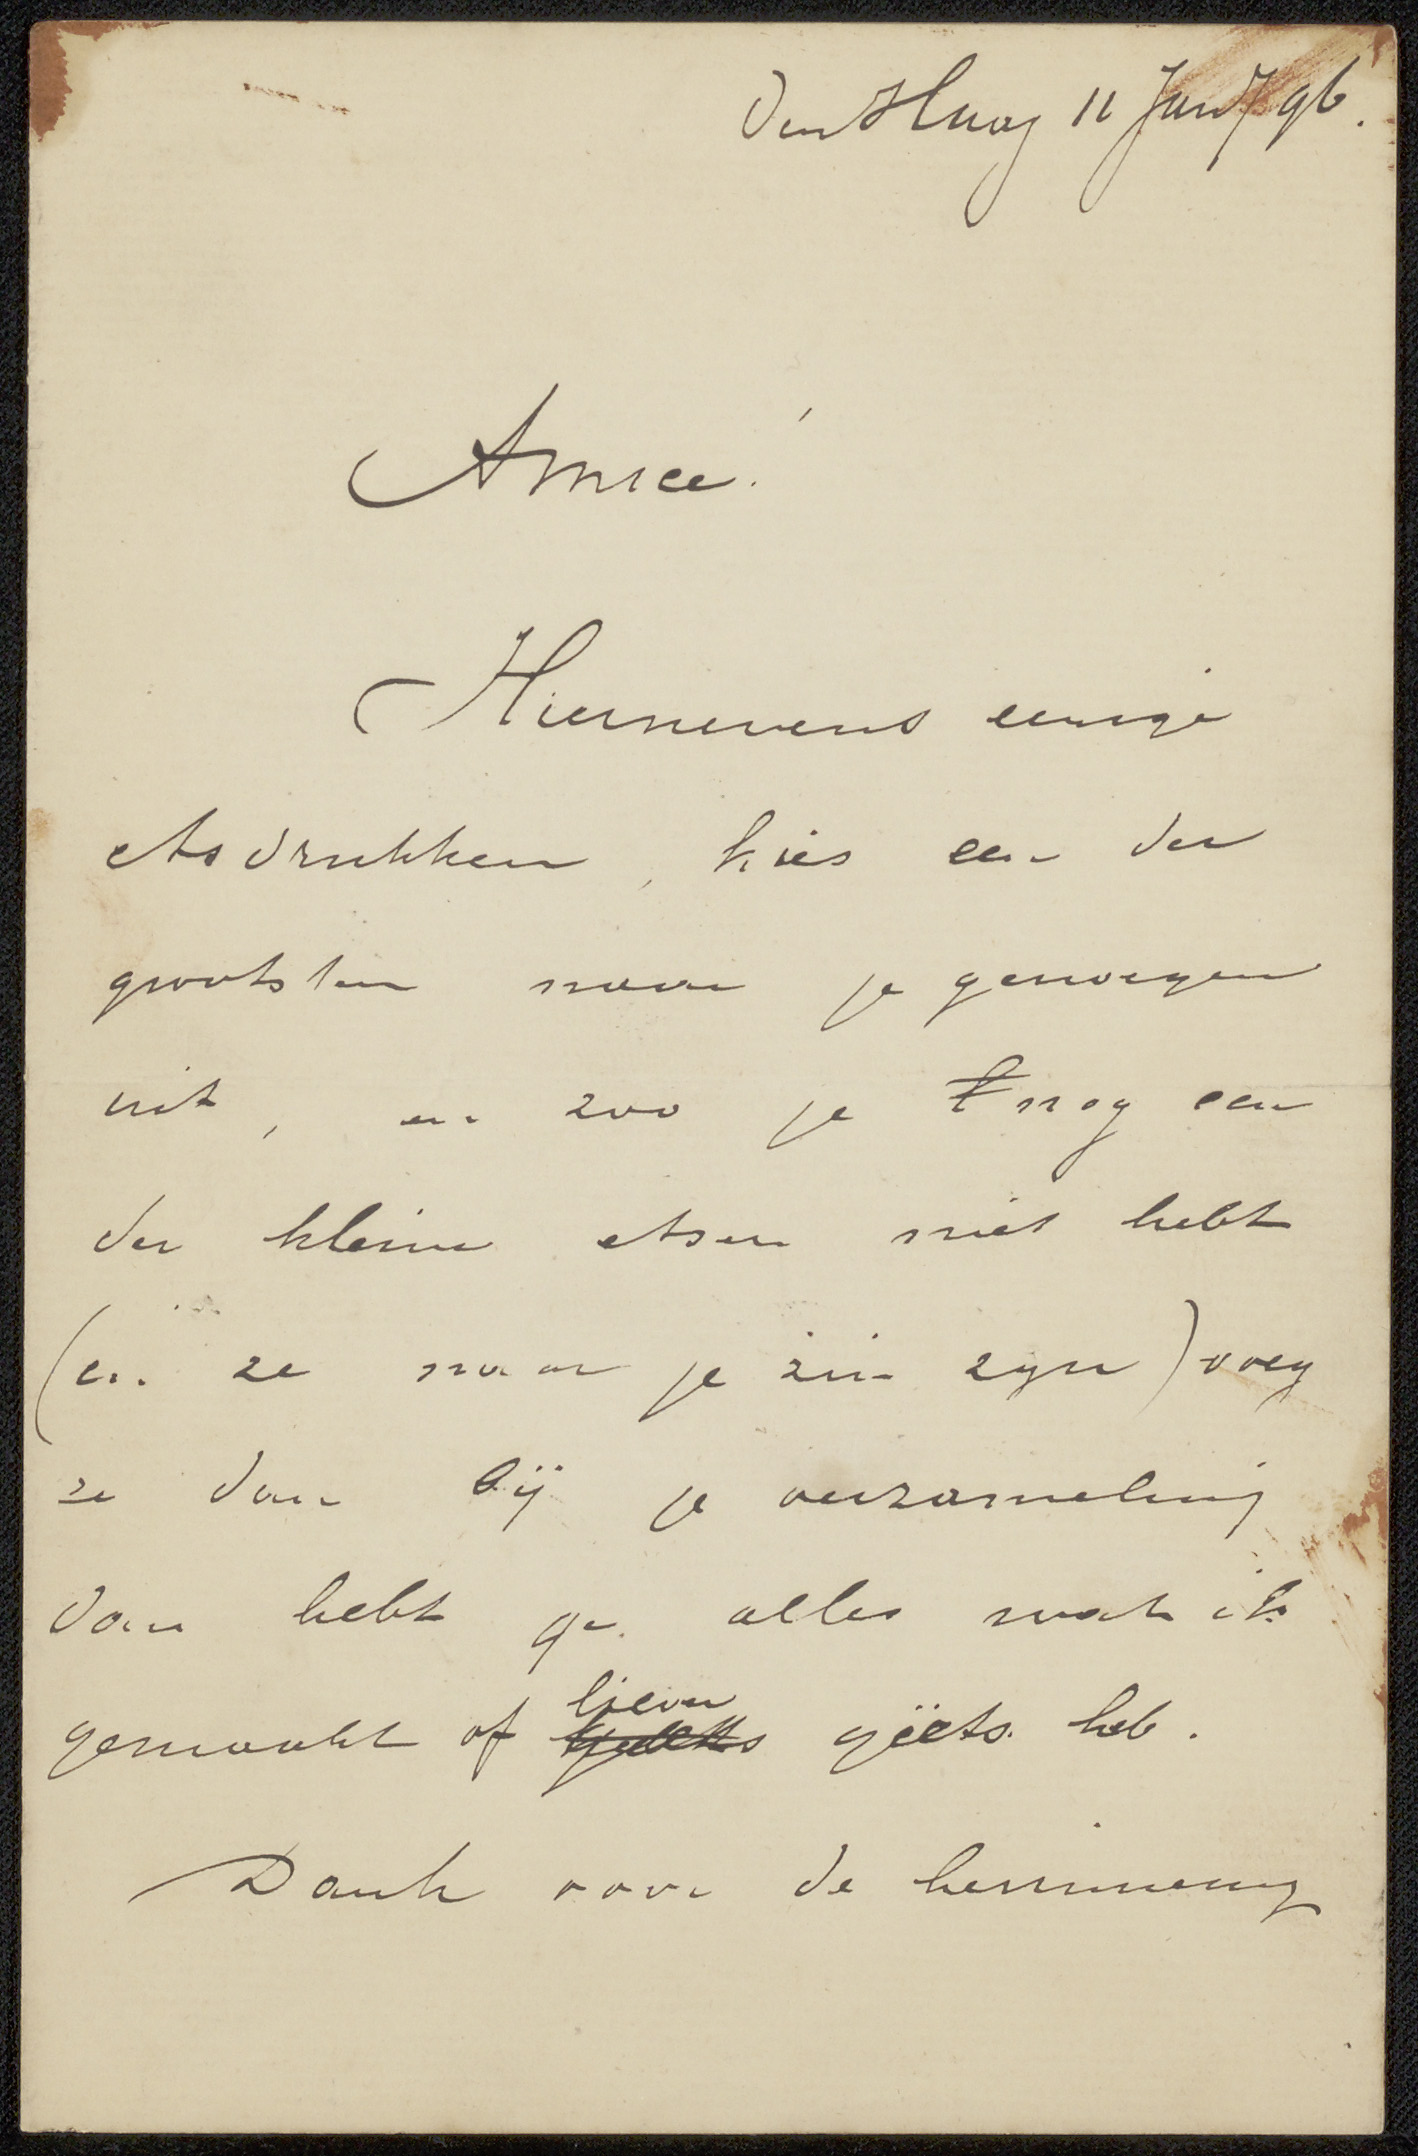 den Haag 11 Jan/96.
Amice!
Hiernevens eenige
etsdrukken, kies een der
grootsten naar je genoegen
uit, en zoo je nog een
der kleine etsen niet hebt
(en ze naar je zin zyn) voeg
ze dan bij je verzameling
dan hebt ge alles wat ik
gemaakt of liever geëts heb.
Dank voor de herinnering